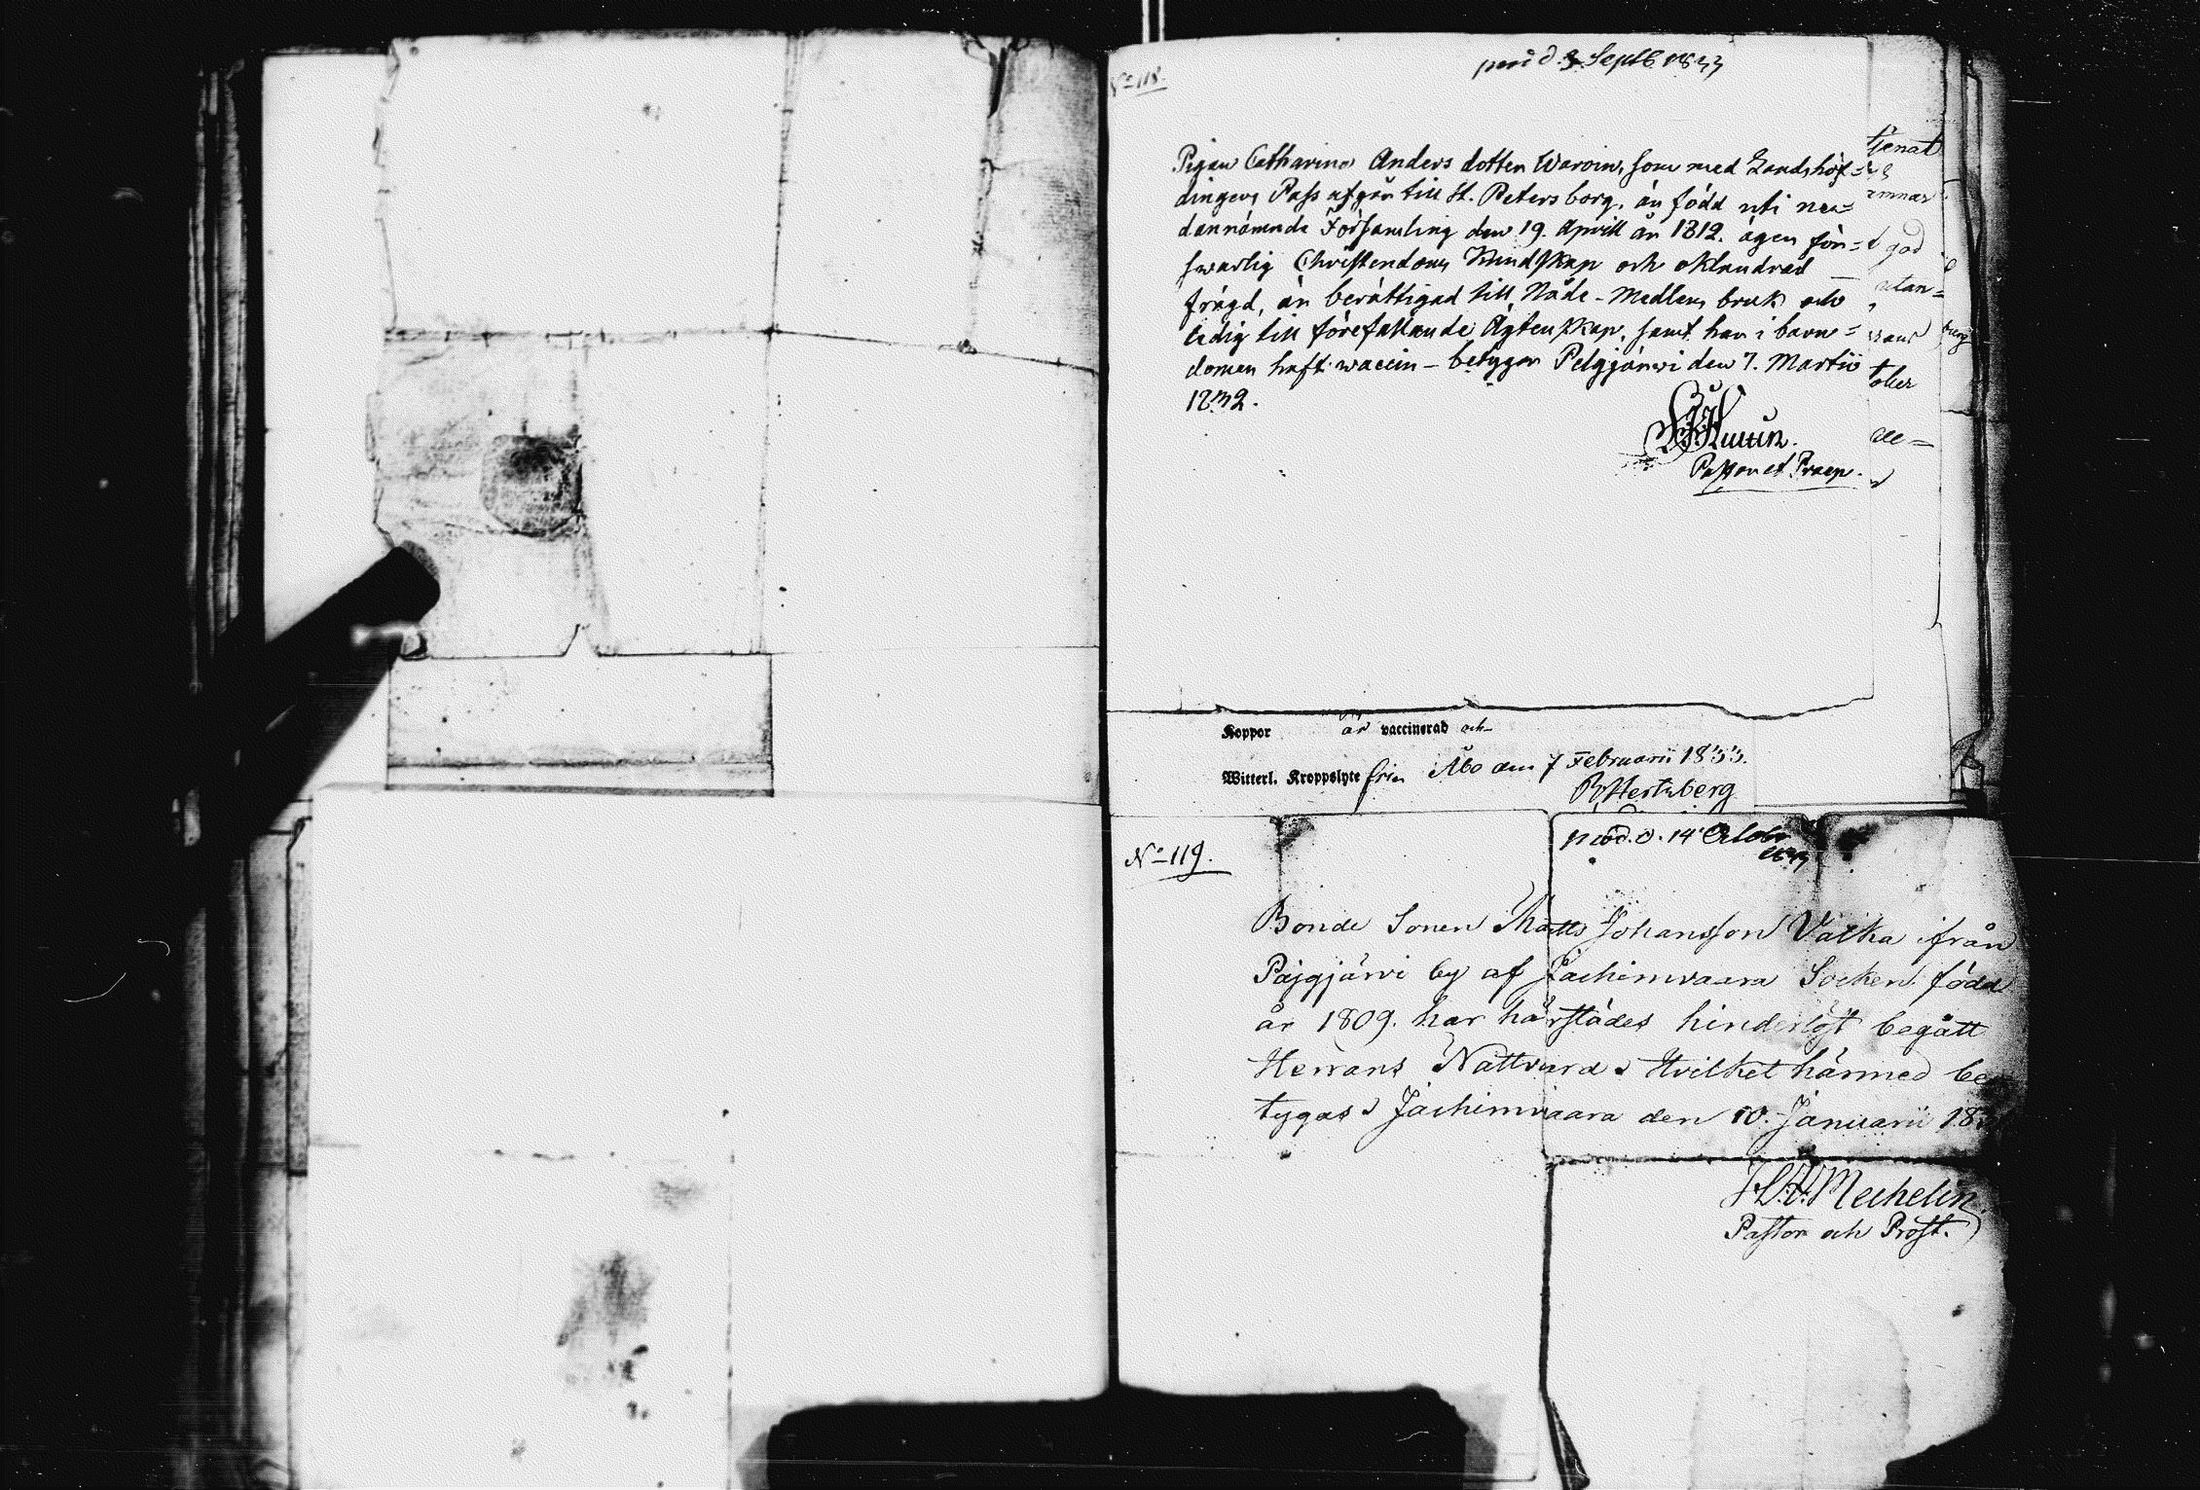 No 118.
prod. d. 3 Septb 1833
Pigan Catharina Anders dotter Waroin, som med Landshöf=
dingens Pass afgår till St. Petersborg, är född uti ne=
dannämnde Församling den 19. Aprill år 1812. äger för=
swarlig Christendoms Kundskap och oklandrad
frägd, är berättigad till Nåde-Medlens bruk och
ledig till förefallande Ägtenskap, samt har i barn=
domen haft vaccin – betygar Pelgjärwi den 7. Martii
1832.
Pastor et Praep.
tjenat
god
utan=
Koppor är vaccinerad och
Witterl. Kroppslyte fri. Åbo den 7 Februarii 1833.
Hertzberg
No 119.
prod. d. 14 Octobr
1833
Bonde Sonen Matts Johansson Välka ifrån
Päjgjärvi by af Jachimvaara Socken född
år 1809. har härstädes hinderlöst begått
Herrans Nattvard. Hvilket härmed be
tygas. Jachimvaara den 10. Januarii 18
Mechelin
Pastor och Prost.